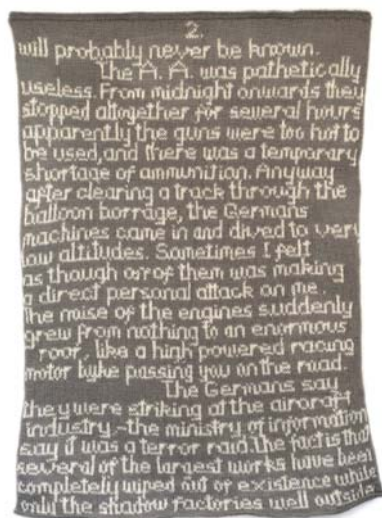 2.
will probably never be known.
The A. A. was pathetically
useless. From midnight onwards they
stopped altogether for several hours
apparently the guns were too hot to
be used, and there was a temporary
shortage of ammunition. Anyway
after clearing a track through the
balloon barrage, the Germans
machines came in and dived to very
low altitudes. Sometimes I felt
as though one of them was making
a direct personal attack on me.
The noise of the engines suddenly
grew from nothing to an enormous
roar, like a high powered racing
motor byke passing you on the road.
The Germans say
they were striking at the aircraft
industry,-the ministry of information
say it was a terror raid. The fact is that
several of the largest works have been
completely wiped out of existence while
only the shadow factories well outside